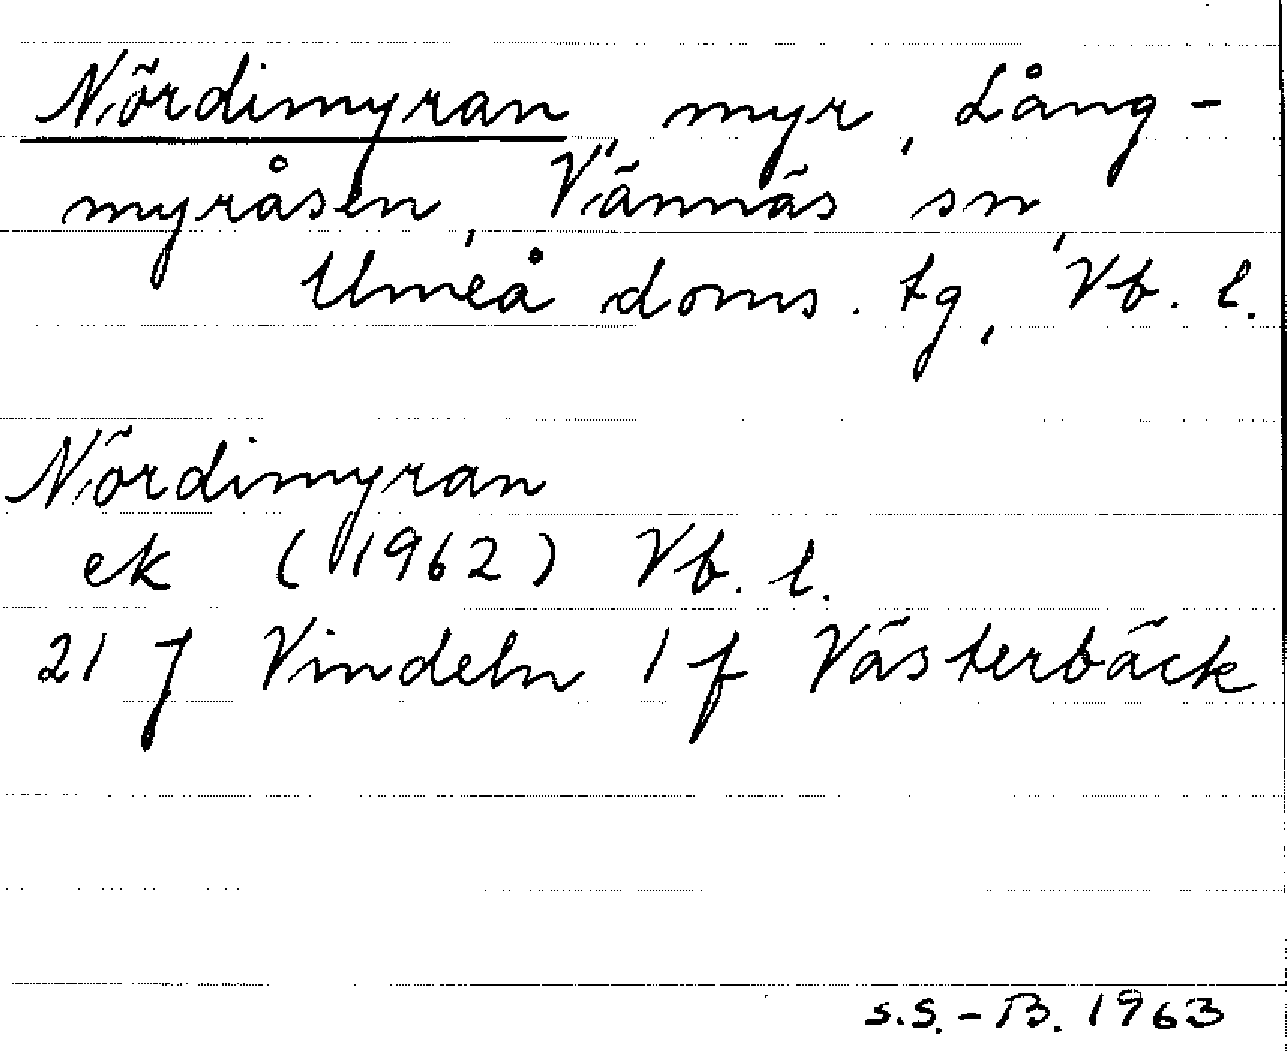 Nördimyran, myr, Lång-
myråsen, Vännäs sn,
Umeå doms. tg, Vb. l.
Nördimyran
ek (1962) Vb. l.
21 J Vindeln 1 f Västerbäck
S.S.-B. 1963